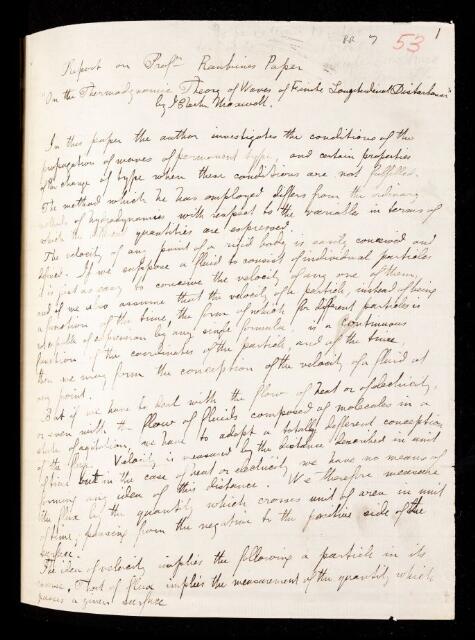 RR 7 53 1
Report on Profr. Rankines Paper
"On the Thermodynamic Theory of Waves of Finite Longitudinal Disturbance"
by J Clerk Maxwell.
In this paper the author investigates the conditions of the
propagation of waves of permanent type, and certain properties
of the change of type when these conditions are not fulfilled.
The method which he has employed differs from the ordinary
methods of hydrodynamics with respect to the variables in terms of
which the quantities are expressed.
The velocity of any point of a rigid body is easily conceived and
defined. If we suppose a fluid to consist of individual particles
it is just as easy to conceive the velocity of any one of them,
and if we also assume that the velocity of a particle, instead of being
a function of the time, the form of which for different particles is
incapable of expression by any single formula, is a continuous
function of the coordinates of the particle, and of the time,
then we may form the conception of the velocity of a fluid at
any point.
But if we have to deal with the flow of heat or of electricity,
or even with the flow of fluids composed of molecules in a
state of agitation, we have to adopt a totally different conception
of the flux. Velocity is measured by the distance described in unit
of time but in the case of heat or electricity we have no means of
forming any idea of this distance. We therefore measure
the flux by the quantity which crosses unit of area in unit
of time, passing from the negative to the positive side of the
surface.
The idea of velocity implies the following a particle in its
course. That of flux implies the measurement of the quantity which
passes a given surface